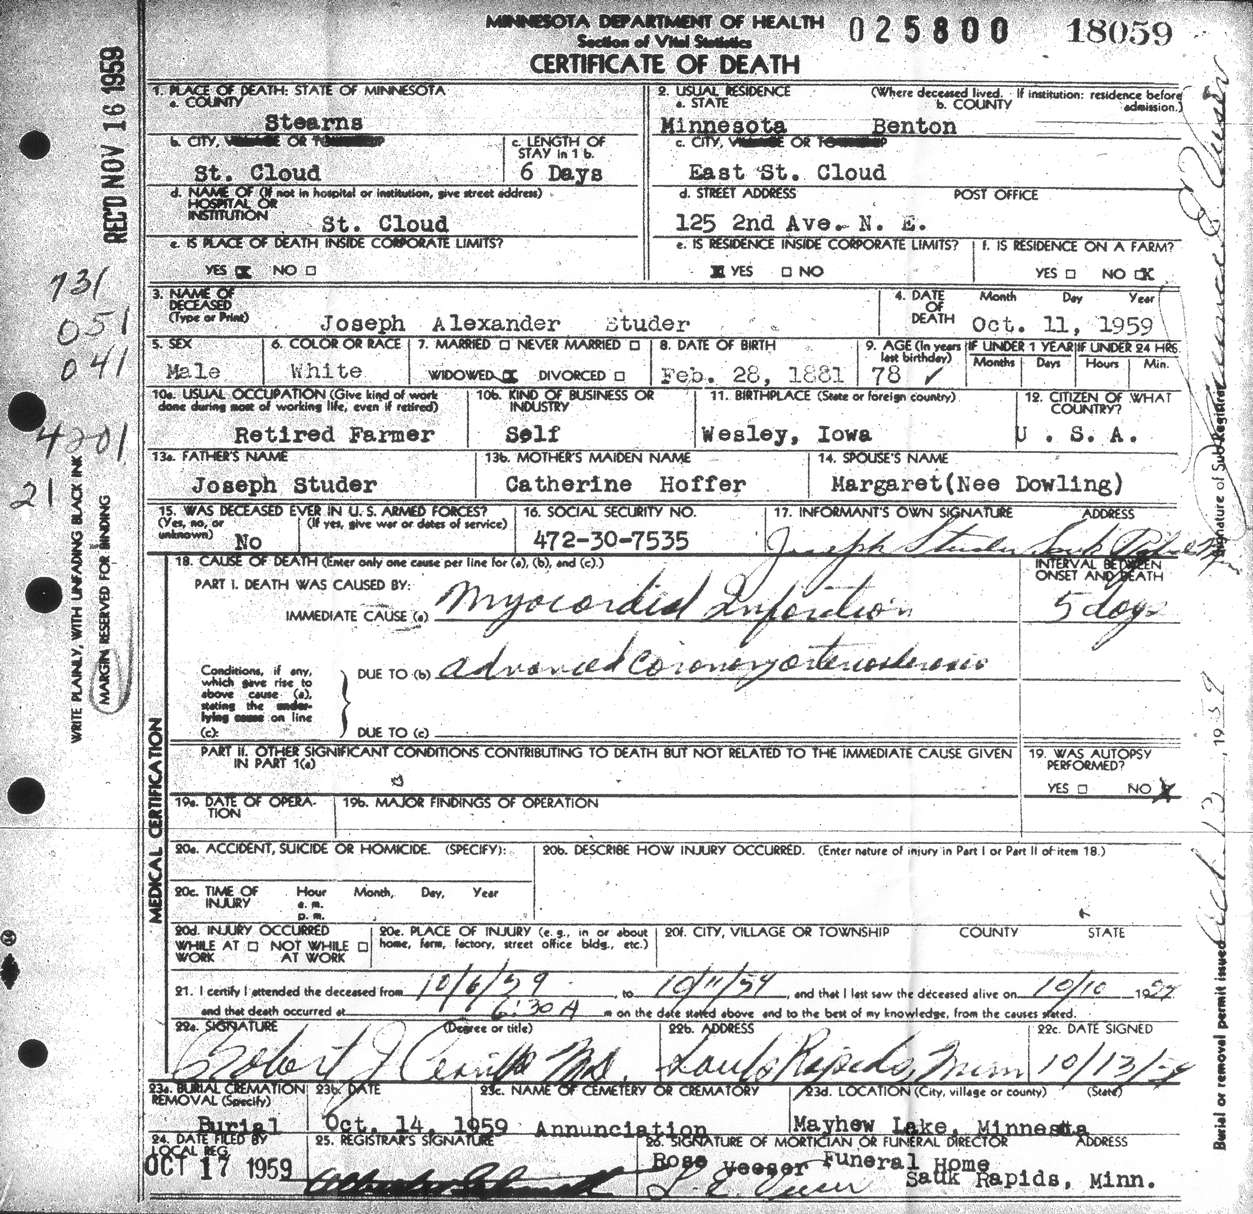 MINNESOTA DEPARTMENT OF HEALTH
Section of Vital Statistics
CERTIFICATE OF DEATH
025800 18059
REC'D NOV 16 1959
731
051
041
4201
21
WRITE PLAINLY, WITH UNFADING BLACK INK
MARGIN RESERVED FOR BINDING
1. PLACE OF DEATH: STATE OF MINNESOTA
a. COUNTY
Stearns
b. CITY, VILLAGE OR TOWNSHIP
St. Cloud
c. LENGTH OF STAY in 1 b.
6 Days
d. NAME OF (If not in hospital or institution, give street address)
HOSPITAL OR
INSTITUTION
St. Cloud
e. IS PLACE OF DEATH INSIDE CORPORATE LIMITS?
YES X NO
2. USUAL RESIDENCE (Where deceased lived. If institution: residence before admission.)
a. STATE b. COUNTY
Minnesota Benton
c. CITY, VILLAGE OR TOWNSHIP
East St. Cloud
d. STREET ADDRESS POST OFFICE
125 2nd Ave. N. E.
e. IS RESIDENCE INSIDE CORPORATE LIMITS?
X YES NO
f. IS RESIDENCE ON A FARM?
YES NO X
3. NAME OF DECEASED (Type or Print)
Joseph Alexander Studer
4. DATE OF DEATH Month Day Year
Oct. 11, 1959
5. SEX
Male
6. COLOR OR RACE
White
7. MARRIED NEVER MARRIED
WIDOWED X DIVORCED
8. DATE OF BIRTH
Feb. 28, 1881
9. AGE (In years last birthday)
78 ✓
IF UNDER 1 YEAR IF UNDER 24 HRS.
Months Days Hours Min.
10a. USUAL OCCUPATION (Give kind of work done during most of working life, even if retired)
Retired Farmer
10b. KIND OF BUSINESS OR INDUSTRY
Self
11. BIRTHPLACE (State or foreign country)
Wesley, Iowa
12. CITIZEN OF WHAT COUNTRY?
U . S. A.
13a. FATHER'S NAME
Joseph Studer
13b. MOTHER'S MAIDEN NAME
Catherine Hoffer
14. SPOUSE'S NAME
Margaret(Nee Dowling)
15. WAS DECEASED EVER IN U. S. ARMED FORCES?
(Yes, no, or unknown) (If yes, give war or dates of service)
No
16. SOCIAL SECURITY NO.
472-30-7535
17. INFORMANT'S OWN SIGNATURE ADDRESS
Joseph Studer Sauk Rapids
18. CAUSE OF DEATH (Enter only one cause per line for (a), (b), and (c).)
INTERVAL BETWEEN ONSET AND DEATH
PART I. DEATH WAS CAUSED BY:
IMMEDIATE CAUSE (a) Myocardial Infarction 5 days
Conditions, if any, which gave rise to above cause (a), stating the underlying cause on line (c):
DUE TO (b) advanced coronary arteriosclerosis
DUE TO (c)
PART II. OTHER SIGNIFICANT CONDITIONS CONTRIBUTING TO DEATH BUT NOT RELATED TO THE IMMEDIATE CAUSE GIVEN IN PART 1(a)
19. WAS AUTOPSY PERFORMED?
YES NO X
19a. DATE OF OPERATION
19b. MAJOR FINDINGS OF OPERATION
MEDICAL CERTIFICATION
20a. ACCIDENT, SUICIDE OR HOMICIDE. (SPECIFY):
20b. DESCRIBE HOW INJURY OCCURRED. (Enter nature of injury in Part I or Part II of item 18.)
20c. TIME OF INJURY Hour a. m. p. m. Month, Day, Year
20d. INJURY OCCURRED
WHILE AT WORK NOT WHILE AT WORK
20e. PLACE OF INJURY (e. g., in or about home, farm, factory, street office bldg., etc.)
20f. CITY, VILLAGE OR TOWNSHIP COUNTY STATE
21. I certify I attended the deceased from 10/6/59, to 10/11/59, and that I last saw the deceased alive on 10/10 1959
and that death occurred at 6:30 A m on the date stated above and to the best of my knowledge, from the causes stated.
22a. SIGNATURE (Degree or title)
Robert J M.D.
22b. ADDRESS
Sauk Rapids, Minn
22c. DATE SIGNED
10/13/59
23a. BURIAL CREMATION REMOVAL (Specify)
Burial
23b. DATE
Oct. 14, 1959
23c. NAME OF CEMETERY OR CREMATORY
Annunciation
23d. LOCATION (City, village or county) (State)
Mayhew Lake, Minnesota
24. DATE FILED BY LOCAL REG.
OCT 17 1959
25. REGISTRAR'S SIGNATURE
26. SIGNATURE OF MORTICIAN OR FUNERAL DIRECTOR ADDRESS
Rose Veeser Funeral Home
Sauk Rapids, Minn.
Signature of Sub-Registrar
Burial or removal permit issued Oct. 13, 1959